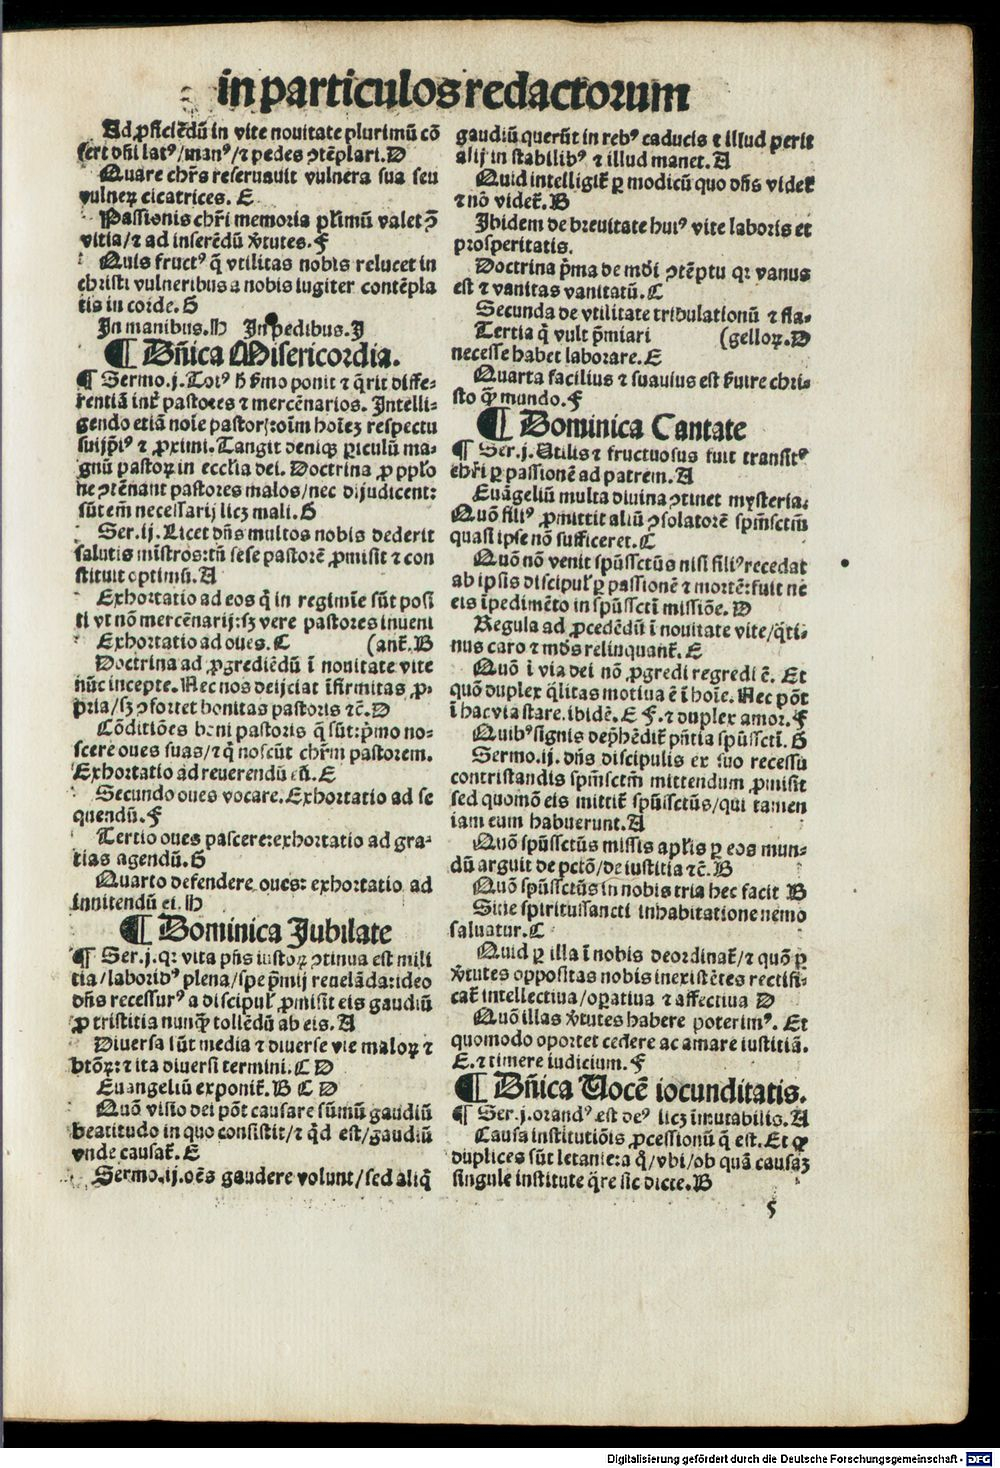 in particulos redactorum
Ad ꝓficiēdū in vite nouitate plurimū cō
fert dn̄i latꝰ/manꝰ/⁊ pedes ꝯtēplari. D
Quare chr̄s reseruauit vulnera sua seu
vulneꝝ cicatrices. E
Passionis chr̄i memoria plīmū valet ꝯ̄
vitia/⁊ ad inserēdū v̓tutes. F
Quis fructꝰ q̄ vtilitas nobis relucet in
christi vulneribus a nobis iugiter contēpla
tis in corde. G
In manibus. H In pedibus. I
¶ Dn̄ica Misericordia.
¶ Sermo. j. Totꝰ h̄ s̄mo ponit ⁊ q̄rit diffe-
rentiā int̓ pastores ⁊ mercēnarios. Intelli-
gendo etiā noīe pastoꝝ: oīm hoīeʒ respectu
suijpīꝰ ⁊ ꝓximi. Tangit deniqꝫ ꝑiculū ma-
gnū pastoꝝ in ecclīa dei. Doctrina ꝓ pplo
ne ꝯtēnant pastores malos/nec dijudicent:
sūt em̄ necessarij licʒ mali. G
Ser. ij. Licet dn̄s multos nobis dederit
salutis mīstros: tn̄ sese pastorē ꝓmisit ⁊ con
stituit optimū. A
Exhortatio ad eos q̄ in regimīe sūt posi
ti vt nō mercēnarij: sʒ vere pastores inueni
Exhortatio ad oues. C (ant̓. B
Doctrina ad ꝓgrediēdū ī nouitate vite
nūc incepte. Nec nos deijciat īfirmitas ꝓ-
pria/sʒ ꝯfortet bonitas pastoris ⁊c̄. D
Cōditiōes boni pastoris q̄ sūt: p̄mo no-
scere oues suas/⁊ q̄ noscūt chr̄m pastorem.
Exhortatio ad reuerendū eū. E
Secundo oues vocare. Exhortatio ad se
quendū. F
Tertio oues pascere: exhortatio ad gra-
tias agendū. G
Quarto defendere oues: exhortatio ad
innitendū ei. H
¶ Dominica Jubilate
¶ Ser. j. qꝛ vita pn̄s iustoꝝ ꝯtinua est mili
tia/laboribꝰ plena/spe p̄mij reuelāda: ideo
dn̄s recessurꝰ a discipul̓ ꝓmisit eis gaudiū
ꝓ tristitia nunꝙ̄ tollēdū ab eis. A
Diuersa sūt media ⁊ diuerse vie maloꝝ ⁊
btōꝝ: ⁊ ita diuersi termini. C D
Euangeliū exponit̓. B C D
Quō visio dei pōt causare sūmū gaudiū
beatitudo in quo consistit/⁊ q̄d est/gaudiū
vnde causat̓. E
Sermo. ij. oēs gaudere volunt/sed aliq̄
gaudiū querūt in rebꝰ caducis ⁊ illud perit
alij in stabilibꝰ ⁊ illud manet. A
Quid intelligit̓ ꝑ modicū quo dn̄s videt̓
⁊ nō videt̓. B
Ibidem de breuitate huiꝰ vite laboris et
prosperitatis.
Doctrina p̄ma de mūdi ꝯtēptu qꝛ vanus
est ⁊ vanitas vanitatū. C
Secunda de vtilitate tribulationū ⁊ fla-
Tertia q̄ vult p̄miari (gelloꝝ. D
necesse habet laborare. E
Quarta facilius ⁊ suauius est s̓uire chri-
sto ꝙ̄ mundo. F
¶ Dominica Cantate
¶ Ser. j. Vtilis ⁊ fructuosus fuit transitꝰ
chr̄i ꝑ passionē ad patrem. A
Euāgeliū multa diuina ꝯtinet mysteria.
Quō filiꝰ ꝓmittit aliū ꝯsolatorē spm̄sctm̄
quasi ipse nō sufficeret. C
Quō nō venit spūssctūs nisi filiꝰ recedat
ab ipsis discipul̓ ꝑ passionē ⁊ mortē: fuit ne
eis īpedimēto in spūsscti missiōe. D
Regula ad ꝓcedēdū ī nouitate vite/q̄ti-
nus caro ⁊ mūdꝰ relinquant̓. E
Quō ī via dei nō ꝓgredi regredi ē. Et
quō duplex q̄litas motiua ē ī hoīe. Nec pōt
ī hac via stare. ibidē. E F. ⁊ duplex amor. F
Quibꝰ signis dep̄hēdit̓ pn̄tia spūsscti. G
Sermo. ij. dn̄s discipulis ex suo recessu
contristandis spm̄sctm̄ mittendum ꝓmisit
sed quomō eis mittit̓ spūssctūs/qui tamen
iam eum habuerunt. A
Quō spūssctūs missis aplis̄ ꝑ eos mun-
dū arguit de pctō/de iustitia ⁊c̄. B
Quō spūssctūs in nobis tria hec facit B
Sine spiritussancti inhabitatione nemo
saluatur. C
Quid ꝑ illa ī nobis deordinat̓/⁊ quō ꝑ
v̓tutes oppositas nobis inexistētes rectifi-
cat̓ intellectiua/oꝑatiua ⁊ affectiua D
Quō illas v̓tutes habere poterimꝰ. Et
quomodo oportet cedere ac amare iustitiā.
E. ⁊ timere iudicium. F
¶ Dn̄ica Uocē iocunditatis.
¶ Ser. j. orandꝰ est deꝰ licʒ īmutabilis. A
Causa institutiōis ꝓcessionū q̄ est. Et ꝙ
duplices sūt letanie: a q̄/vbi/ob quā causaʒ
singule institute q̄re sic dicte. B
s
Digitalisierung gefördert durch die Deutsche Forschungsgemeinschaft - DFG